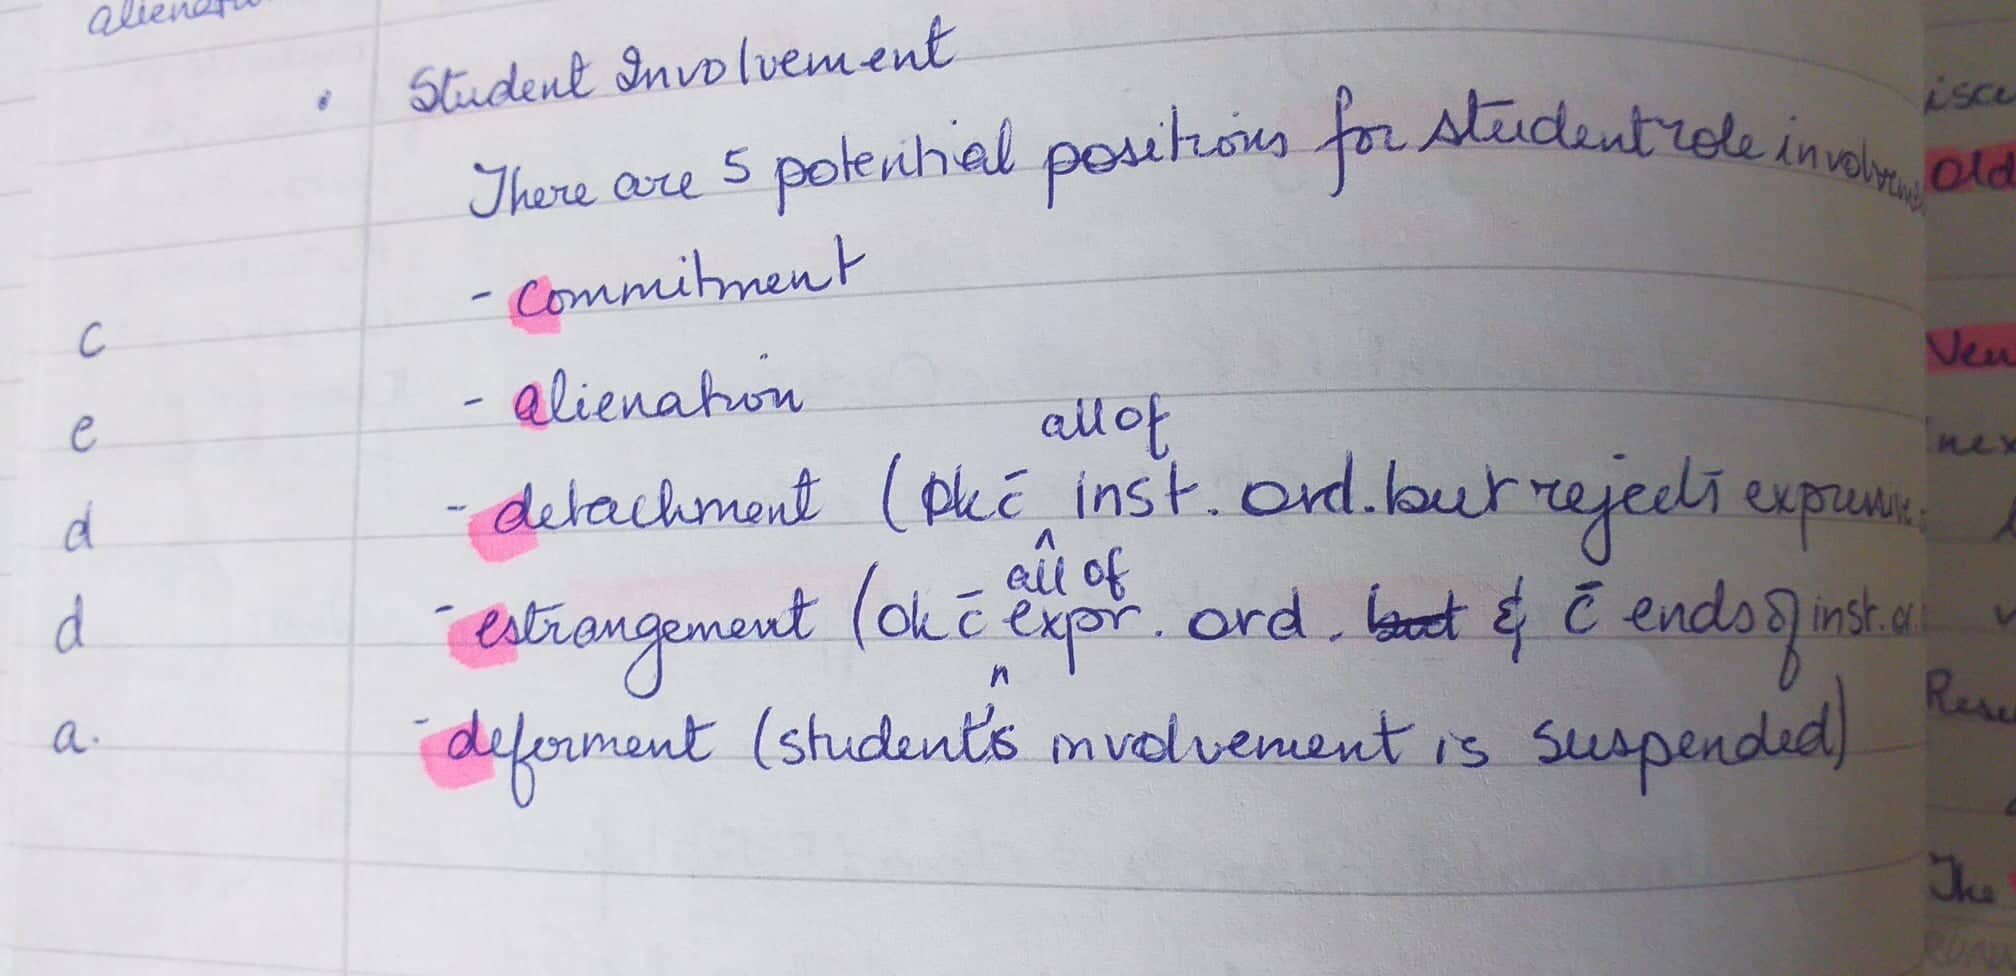 • Student Involvement
There are 5 potential positions for student role involvement
c - commitment
e - alienation
d - detachment (ok c̄ all of inst. ord. but rejects expressive
d - estrangement (ok c̄ all of expr. ord. but & c̄ ends of inst. or.
a. - deferment (student's involvement is suspended)
Old
The